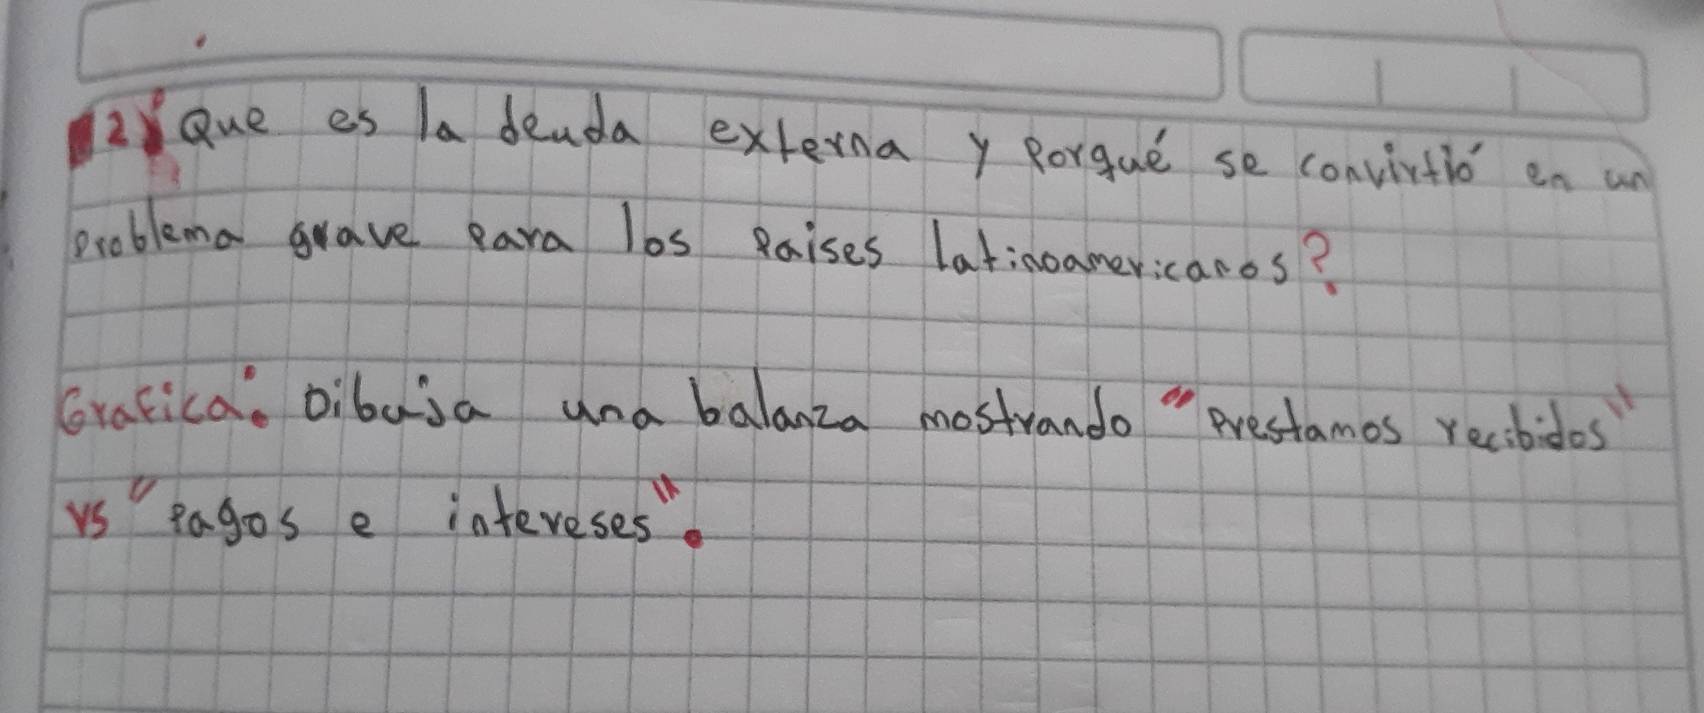 2) Que es la deuda externa y porqué se convirtió en un
problema grave para los paises latinoamericanos?
Grafica: Dibuja una balanza mostrando "Prestamos recibidos"
vs "pagos e intereses".